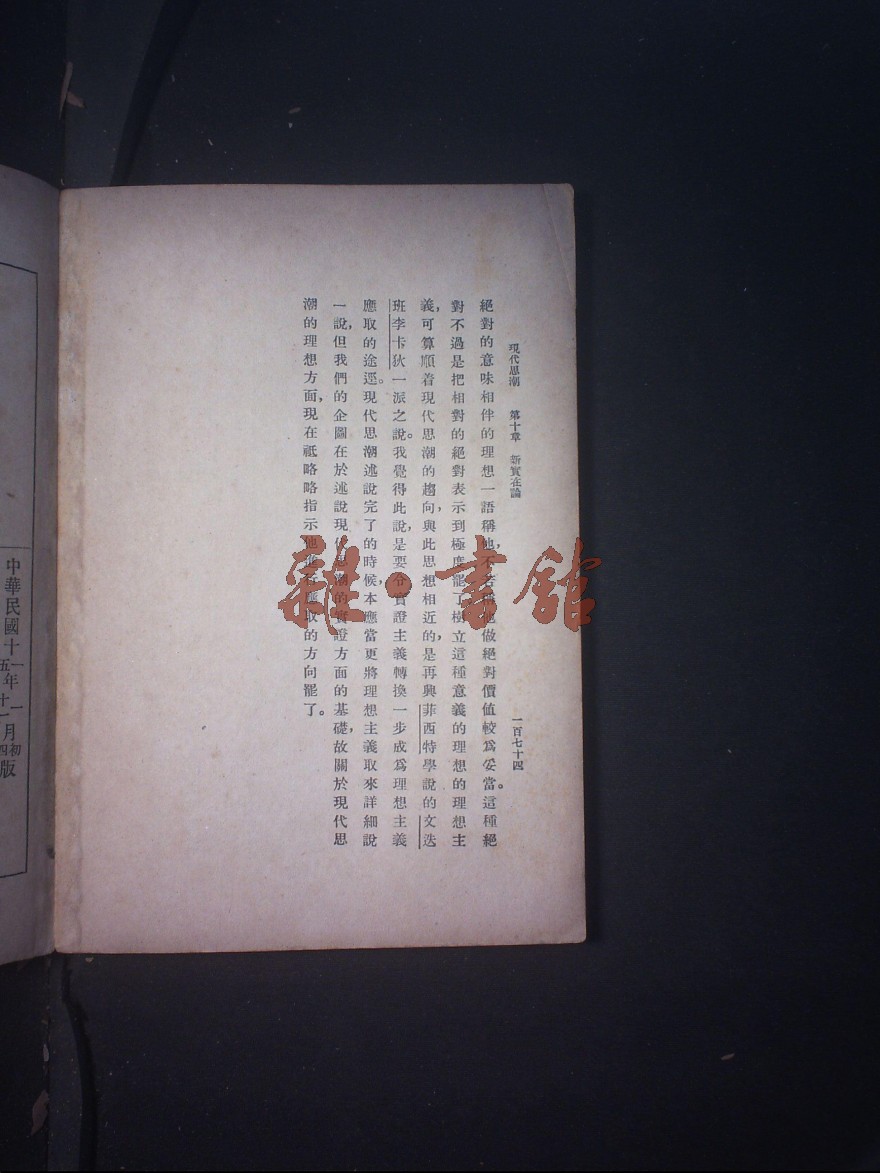 現代思潮　第十章　新實在論
一百七十四
絕對的意味相伴的理想一語稱他，不若稱他做絕對價値較爲妥當。這種絕
對不過是把相對的絕對表示到極度罷了樹立這種意義的理想的理想主
義，可算順着現代思潮的趨向，與此思想相近的，是再興菲西特學說的文迭
班李卡狄一派之說。我覺得此說，是要令實證主義轉換一步成爲理想主義
應取的途逕。現代思潮述說完了的時候，本應當更將理想主義取來詳細說
一說，但我們的企圖在於述說現代思潮的實證方面的基礎，故關於現代思
潮的理想方面，現在祇略略指示他進行應取的方向罷了。
雜·書館
中華民國十一年一月初版
五 十一 四